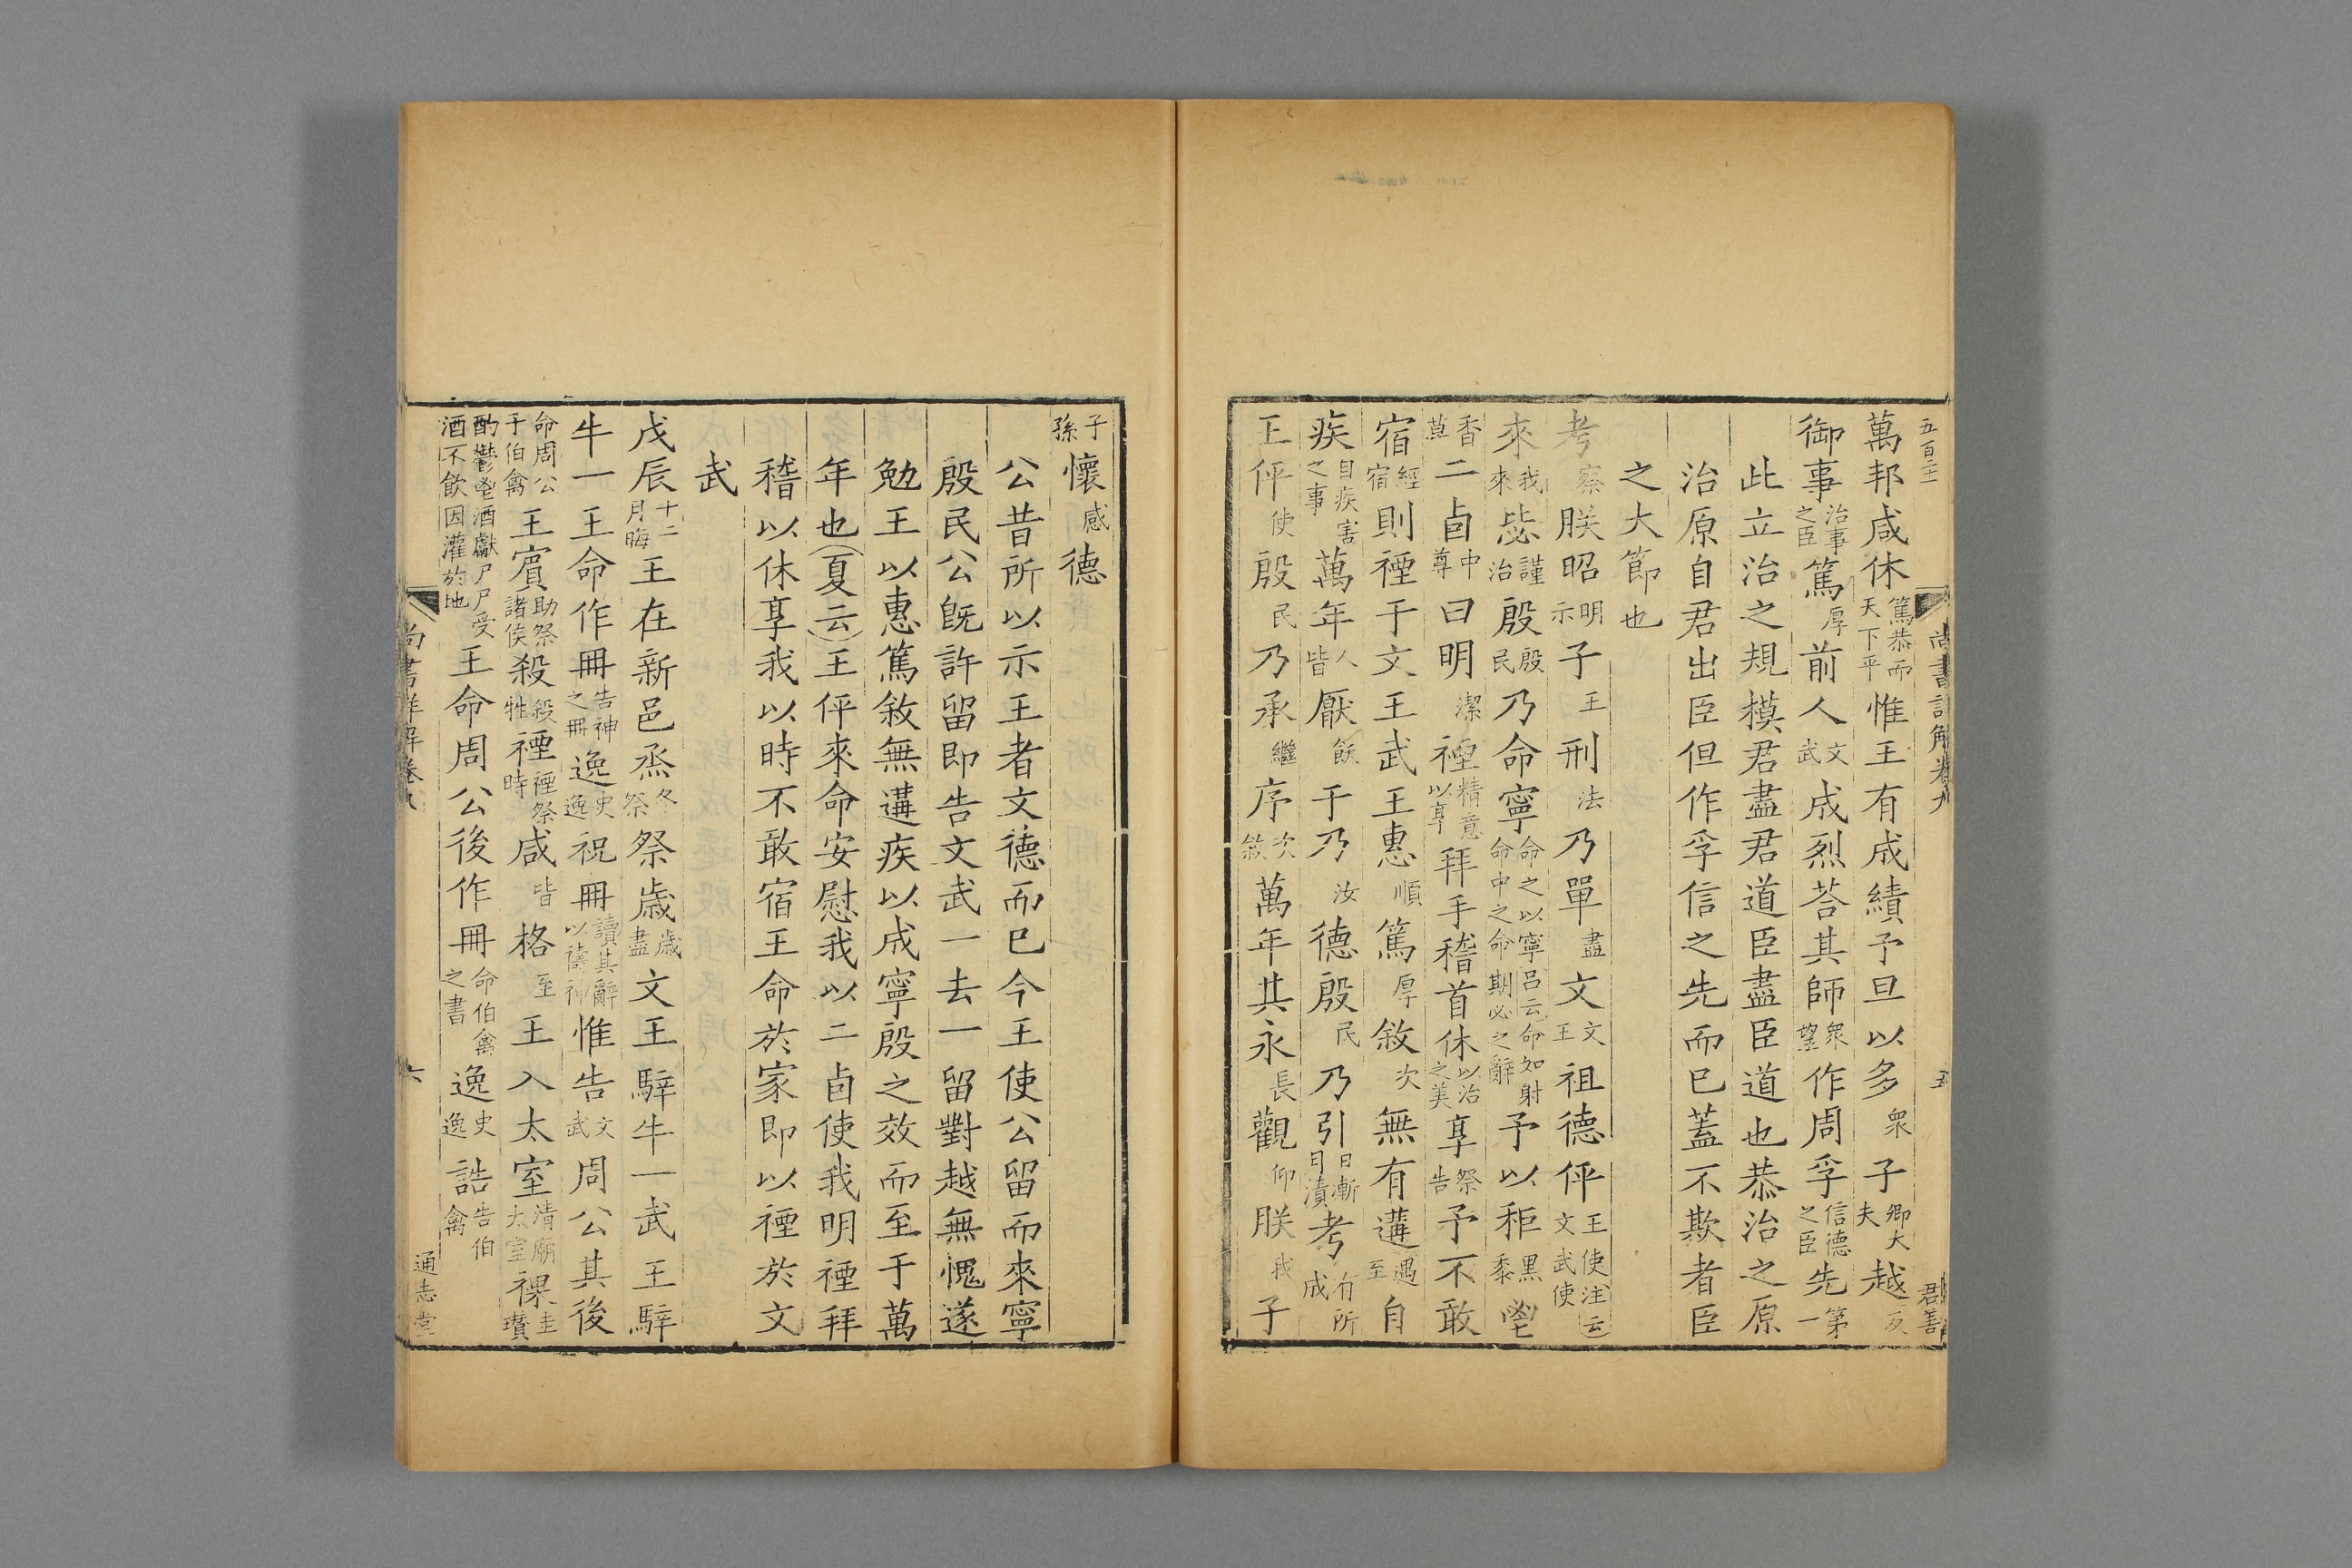 五百二十
尚書詳解卷九
五
君善
萬邦咸休篤恭而天下平惟王有成績予旦以多衆子卿大夫越及
御事治事之臣篤厚前人文武成烈荅其師衆望作周孚信德之臣先第一
此立治之規模君盡君道臣盡臣道也恭治之原
治原自君出臣但作孚信之先而巳蓋不欺者臣
之大節也
考察朕昭明示子王刑法乃單盡文文王祖德伻王使注云文武使
來我來毖謹治殷殷民乃命寧命之以寧呂云命如射命中之命期必之辭予以秬黑黍鬯
香草二卣中尊曰明潔禋精意以享拜手稽首休以治之美享祭告予不敢
宿經宿則禋于文王武王惠順篤厚敘次無有遘遇至自
疾自疾害之事萬年人皆厭飫于乃汝德殷民乃引日漸日漬考有所成
王伻使殷民乃承繼序次敘萬年其永長觀仰朕我子
子孫懷感德
公昔所以示王者文德而巳今王使公留而來寧
殷民公旣許留即告文武一去一留對越無愧遂
勉王以惠篤敘無遘疾以成寧殷之效而至于萬
年也夏云王伻來命安慰我以二卣使我明禋拜
稽以休享我以時不敢宿王命於家即以禋於文
武
戊辰十二月晦王在新邑烝冬祭祭歲歲盡文王騂牛一武王騂
牛一王命作冊告神之冊逸史逸祝冊讀其辭以禱神惟告文武周公其後
命周公于伯禽王賓助祭諸侯殺殺牲禋禋祭時咸皆格至王入太室清廟太室祼圭瓚
酌鬱鬯酒獻尸尸受酒不飲因灌於地王命周公後作冊命伯禽之書逸史逸誥告伯禽
尚書詳解卷九
六
通志堂